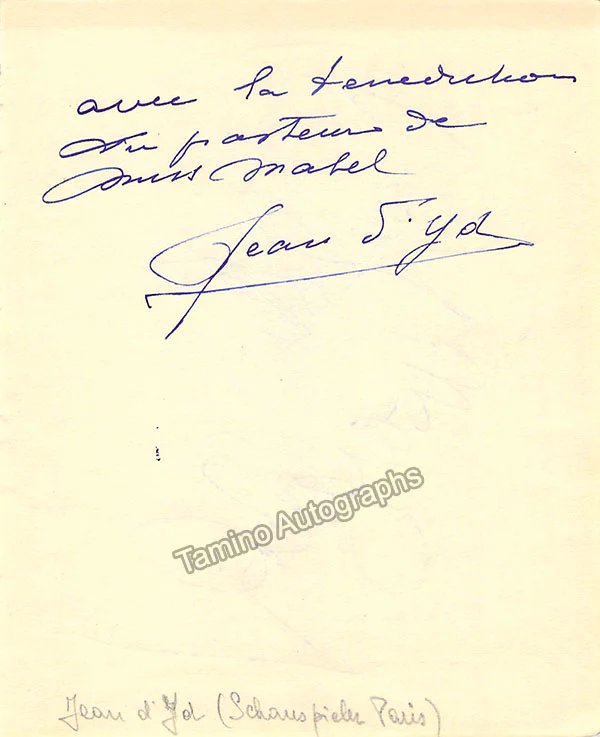 avec la benediction
du pasteur de
miss Mabel
Jean d'Yd
Tamino Autographs
Jean d'Yd (Schauspieler Paris)